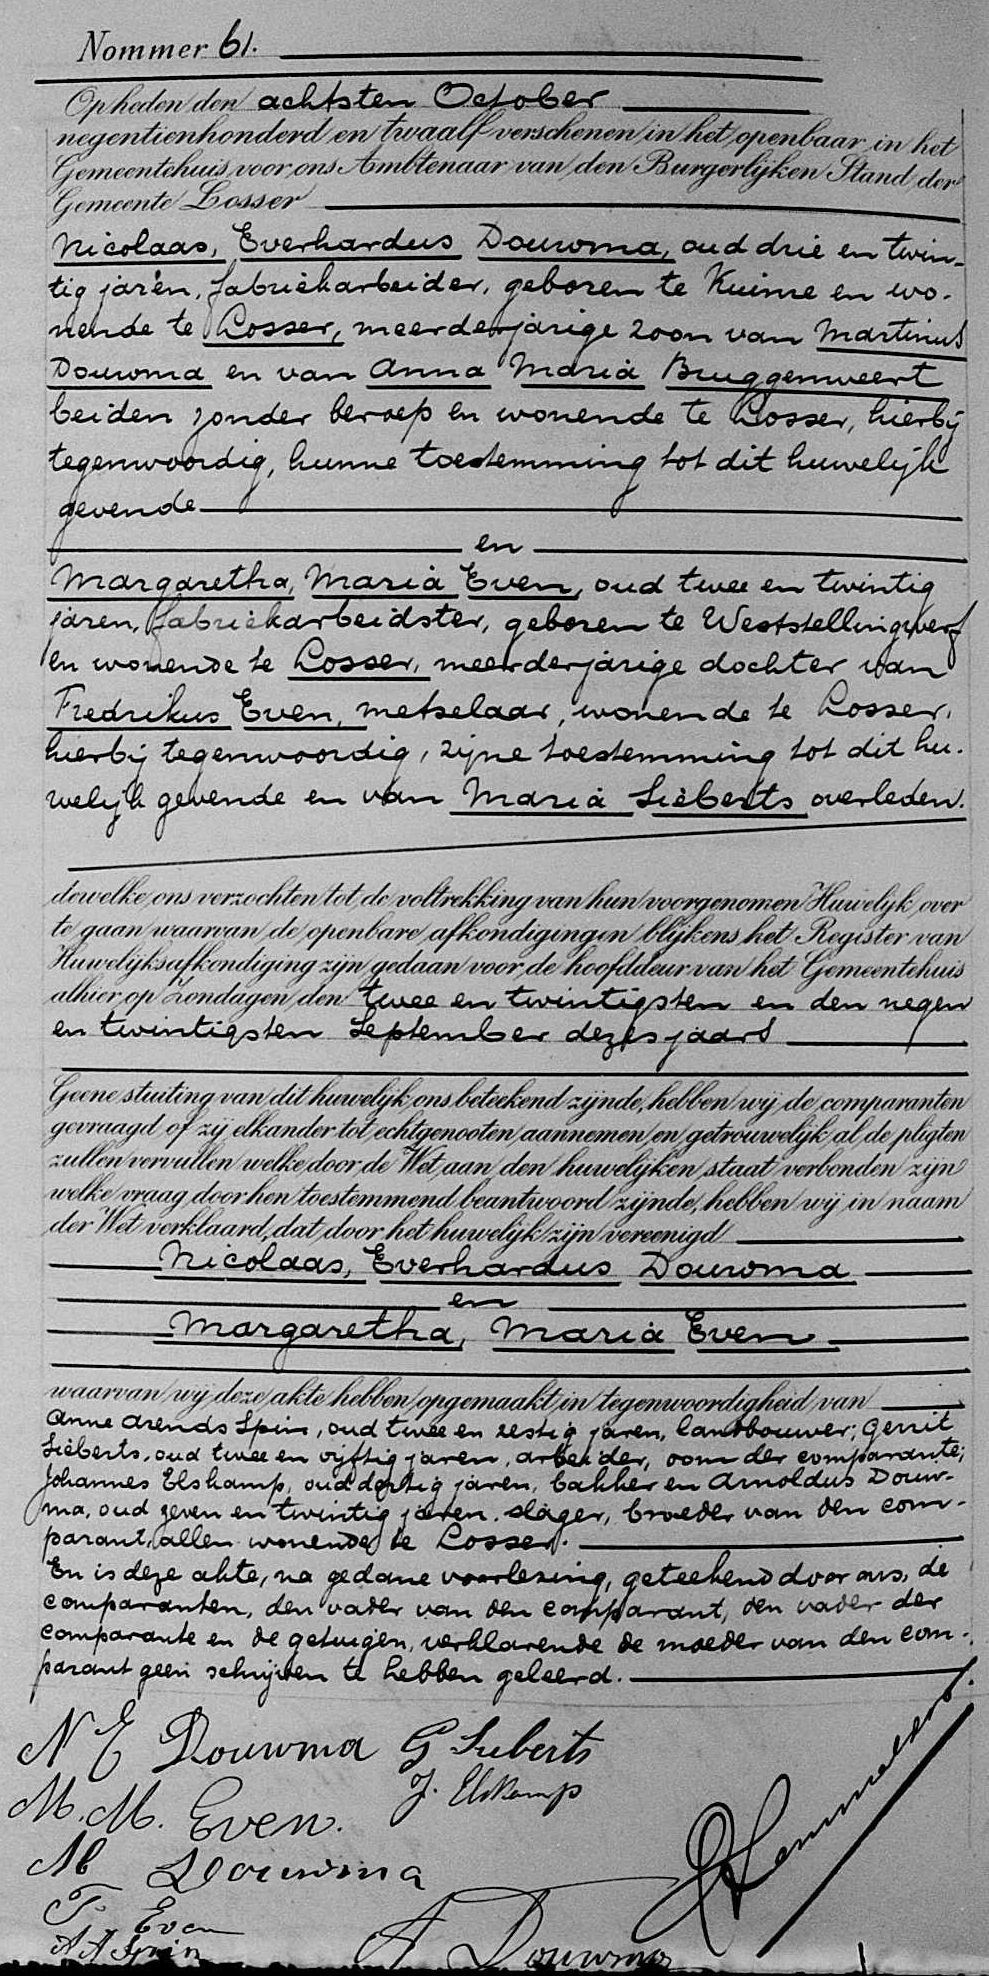 Nommer 61.
Op heden den achtsten October
negentienhonderd en twaalf verschenen in het openbaar in het
Gemeentehuis voor ons Ambtenaar van den Burgerlijken Stand der
Gemeente Losser
Nicolaas, Everhardus Douwma, oud drie en twin-
tig jaren, fabriekarbeider, geboren te Kuinre en wo-
nende te Losser, meerderjarige zoon van Martinus
Douwma en van Anna Maria Bruggenweert
beiden zonder beroep en wonende te Losser, hierbij
tegenwoordig, hunne toestemming tot dit huwelijk
gevende
en
Margaretha, Maria Even, oud twee en twintig
jaren, fabriekarbeidster, geboren te Weststellingwerf
en wonende te Losser, meerderjarige dochter van
Fredrikus Even, metselaar, wonende te Losser,
hierbij tegenwoordig, zijne toestemming tot dit hu-
welijk gevende en van Maria Sieberts overleden.
dewelke ons verzochten tot de voltrekking van hun voorgenomen Huwelijk over
te gaan waarvan de openbare afkondigingen blijkens het Register van
Huwelijksafkondiging zijn gedaan voor de hoofddeur van het Gemeentehuis
alhier op Zondagen den twee en twintigsten en den negen
en twintigsten September dezes jaars
Geene stuiting van dit huwelijk ons beteekend zijnde, hebben wij de comparanten
gevraagd of zij elkander tot echtgenooten aannemen en getrouwelijk al de pligten
zullen vervullen welke door de Wet aan den huwelijken staat verbonden zijn
welke vraag door hen toestemmend beantwoord zijnde, hebben wij in naam
der Wet verklaard, dat door het huwelijk zijn vereenigd
Nicolaas, Everhardus Douwma
en
Margaretha, Maria Even
waarvan wij deze akte hebben opgemaakt in tegenwoordigheid van
Anne Arends Spin, oud twee en zestig jaren, landbouwer; Gerrit
Sieberts, oud twee en vijftig jaren, arbeider, oom der comparante;
Johannes Elskamp, oud dertig jaren, bakker en Arnoldus Douw-
ma, oud zeven en twintig jaren, slager, broeder van den com-
parant, allen wonende te Losser.
En is deze akte, na gedane voorlezing, geteekend door ons, de
comparanten, den vader van den comparant, den vader der
comparante en de getuigen, verklarende de moeder van den com-
parant geen schrijven te hebben geleerd.
N E Douwma G Sieberts
J. Elskamp
M. M. Even.
M Douwma
F. Even
A A Spin
A Douwma